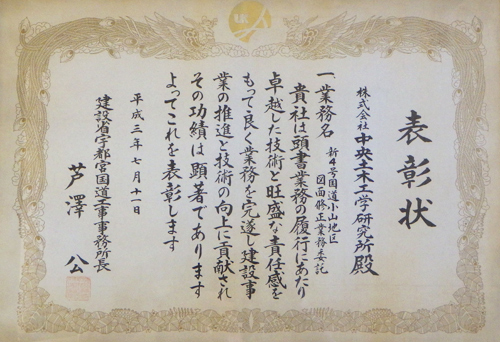 表彰状
株式会社中央土木工学研究所殿
一業務名 新4号国道小山地区
図面修正業務委託
貴社は頭書業務の履行にあたり
卓越した技術と旺盛な責任感を
もって良く業務を完遂し建設事
業の推進と技術の向上に貢献され
その功績は顕著であります
よってこれを表彰します
平成三年七月十一日
建設省宇都宮国道工事事務所長
芦澤 公